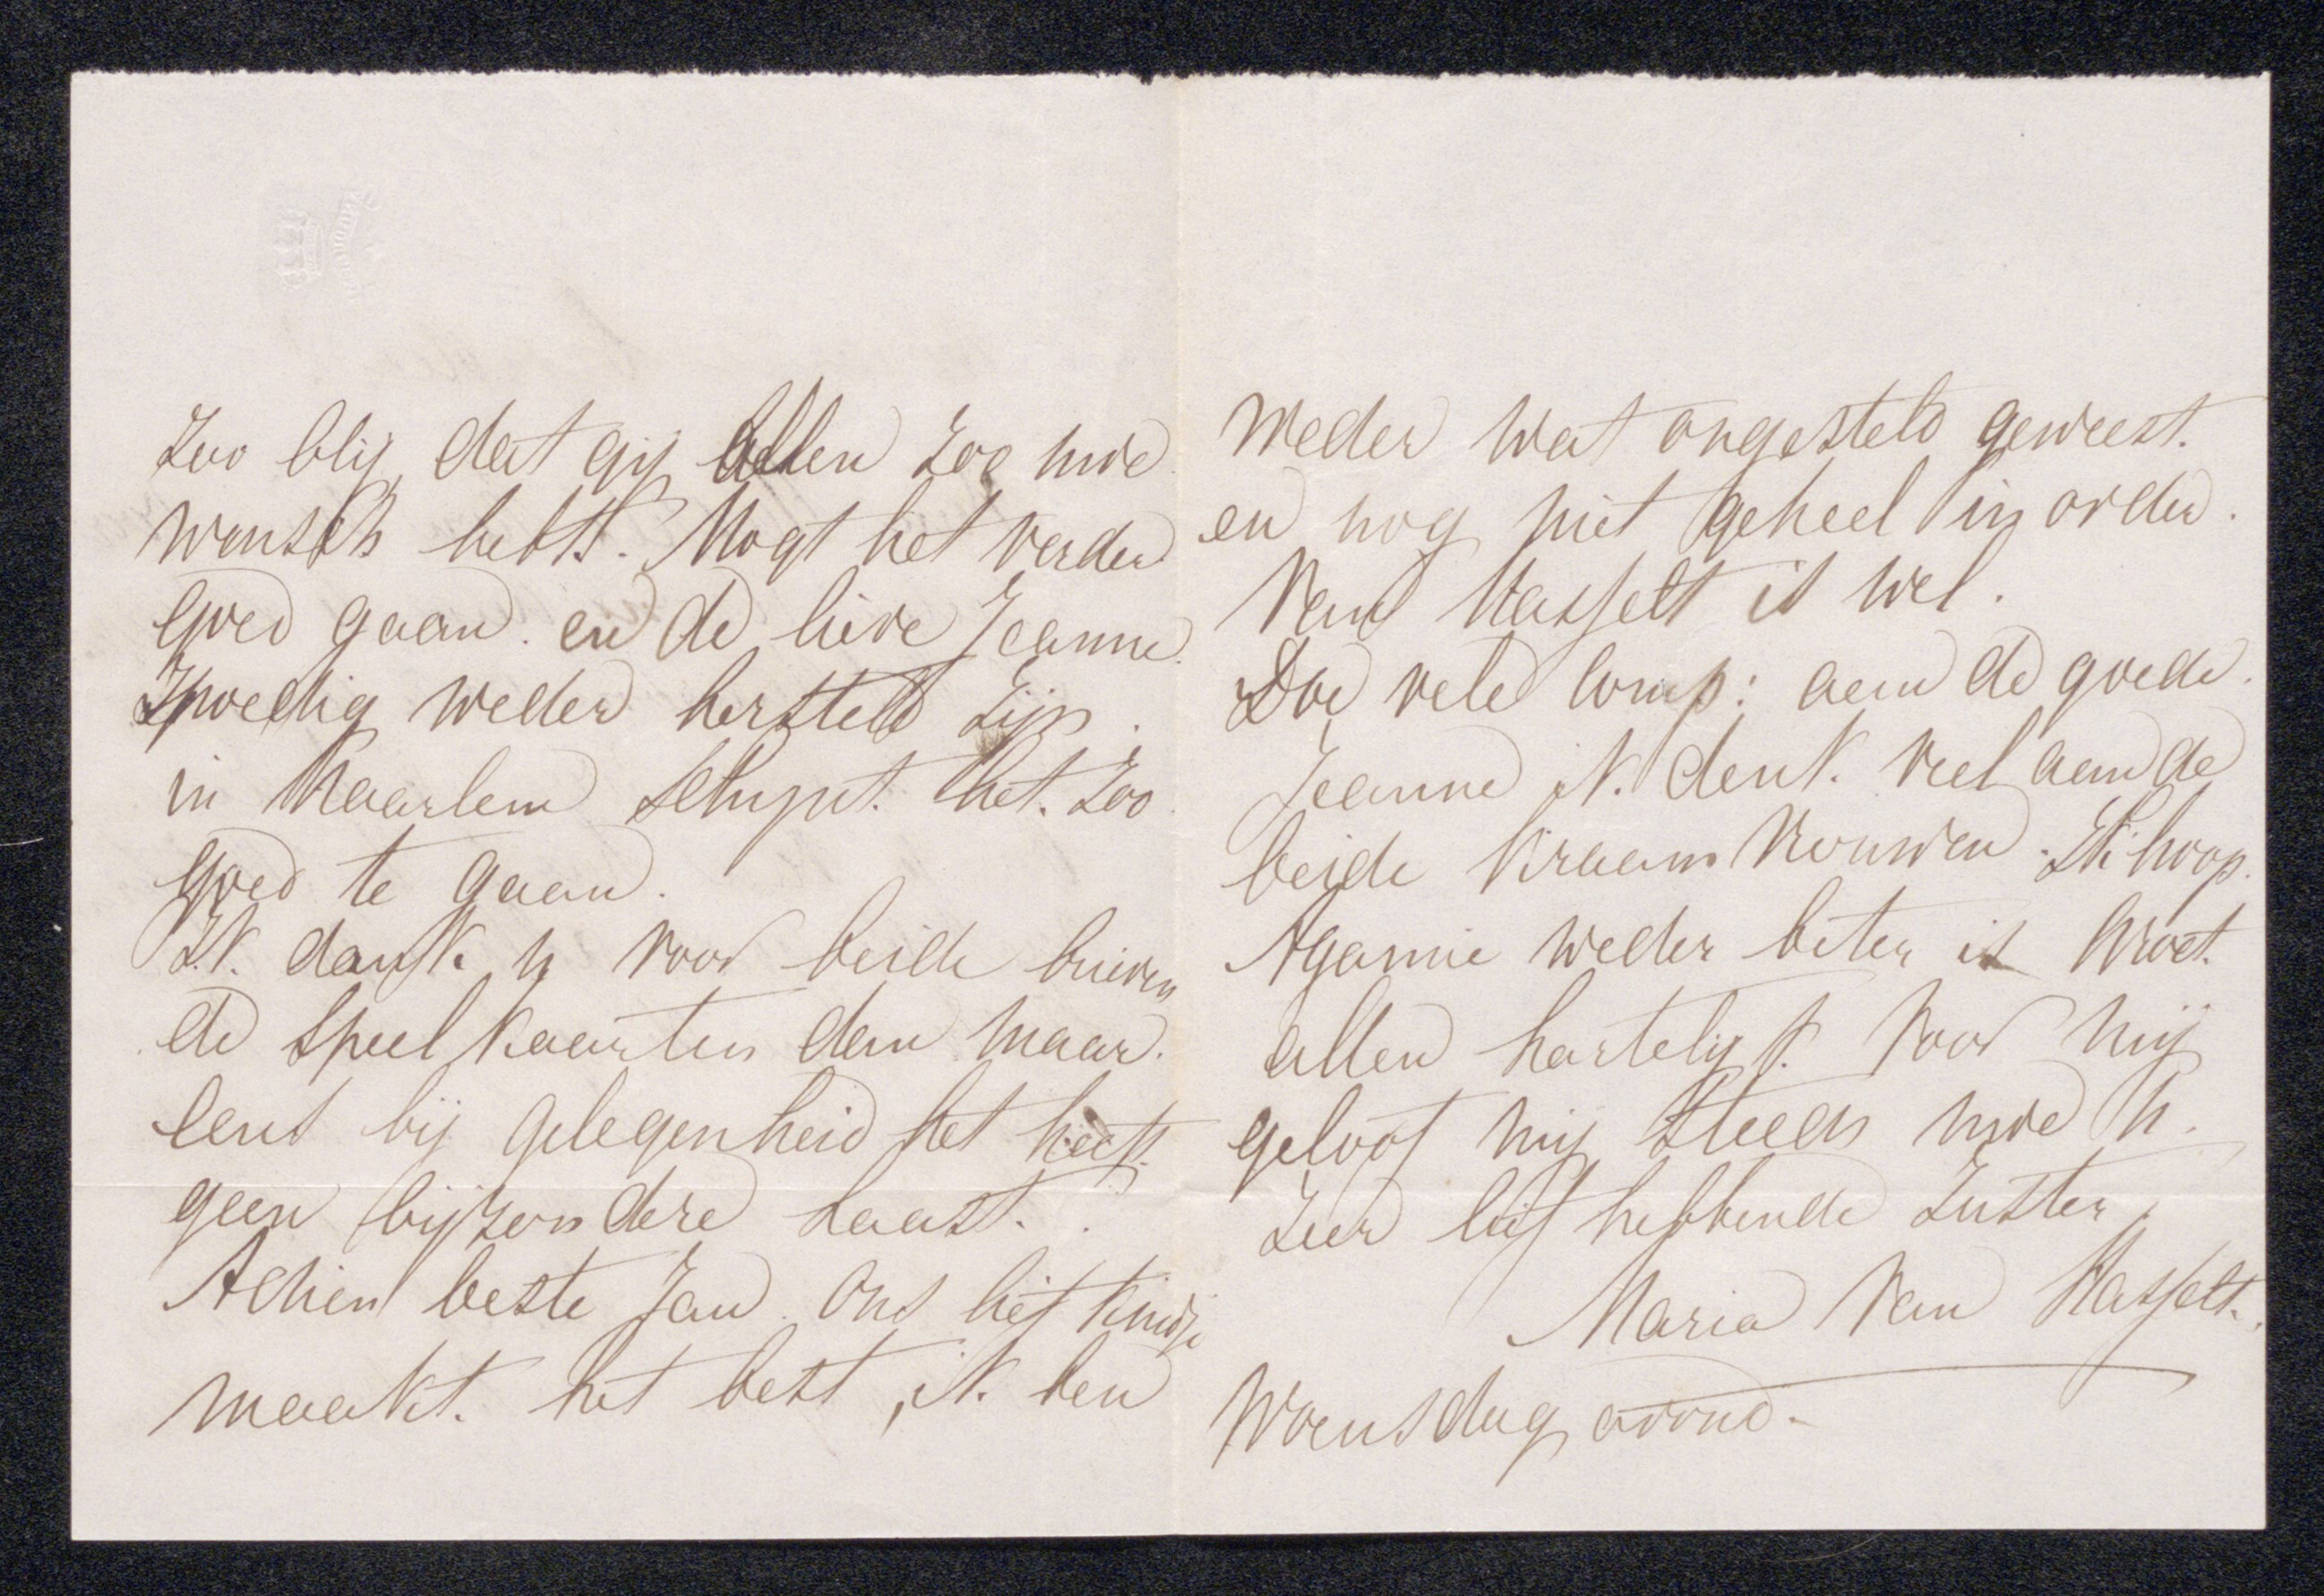 Zoo blij, dat gij allen zoo uwe
wensch hebt. Mogt het verder
goed gaan. en de lieve Jeanne.
spoedig weder hersteld zijn.
in Haarlem schynt. het. zoo
goed te gaan.
Ik. dank u voor beide brieven
de speelkaarten dan maar.
eens bij gelegenheid het heeft
geen bijzondere haast.
Adieu beste Jan. Ons lief kindje
maakt. het best, ik. ben
weder wat ongesteld geweest.
en nog niet geheel in orde.
Van Hasselt is wel.
Doe vele Comp: aan de goede.
Jeanne ik. denk. veel aan de
beide kraam vrouwen. Ik hoop.
weder beter is Groet.
allen hartelyk. voor mij
geloof mij steeds uwe U.
zeer lief hebbende Zuster
Maria van Hasselt.
Woensdag avond.